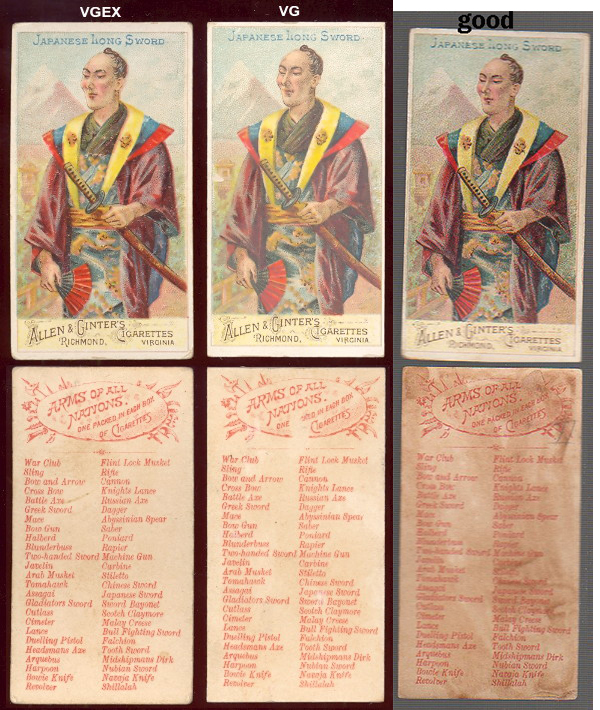 VGEX
VG
good
JAPANESE LONG SWORD
ALLEN & GINTER'S
CIGARETTES
RICHMOND, VIRGINIA
JAPANESE LONG SWORD
ALLEN & GINTER'S
CIGARETTES
RICHMOND, VIRGINIA
JAPANESE LONG SWORD
ALLEN & GINTER'S
CIGARETTES
RICHMOND, VIRGINIA
ARMS OF ALL
NATIONS.
ONE PACKED IN EACH BOX
OF CIGARETTES
War Club Flint Lock Musket
Sling Rifle
Bow and Arrow Cannon
Cross Bow Knights Lance
Battle Axe Russian Axe
Greek Sword Dagger
Mace Abysinian Spear
Bow Gun Saber
Halberd Poniard
Blunderbuss Rapier
Two-handed Sword Machine Gun
Javelin Carbine
Arab Musket Stiletto
Tomahawk Chinese Sword
Assagai Japanese Sword
Gladiators Sword Sword Bayonet
Cutlass Scotch Claymore
Cimeter Malay Crease
Lance Bull Fighting Sword
Duelling Pistol Falchion
Headsmans Axe Tooth Sword
Arquebus Midshipmans Dirk
Harpoon Nubian Sword
Bowie Knife Navaja Knife
Revolver Shillalah
ARMS OF ALL
NATIONS.
ONE IN EACH BOX
OF CIGARETTES
War Club Flint Lock Musket
Sling Rifle
Bow and Arrow Cannon
Cross Bow Knights Lance
Battle Axe Russian Axe
Greek Sword Dagger
Mace Abysinian Spear
Bow Gun Saber
Halberd Poniard
Blunderbuss Rapier
Two-handed Sword Machine Gun
Javelin Carbine
Arab Musket Stiletto
Tomahawk Chinese Sword
Assagai Japanese Sword
Gladiators Sword Sword Bayonet
Cutlass Scotch Claymore
Cimeter Malay Crease
Lance Bull Fighting Sword
Duelling Pistol Falchion
Headsmans Axe Tooth Sword
Arquebus Midshipmans Dirk
Harpoon Nubian Sword
Bowie Knife Navaja Knife
Revolver Shillalah
ARMS OF ALL
NATIONS.
ONE PACKED IN EACH BOX
OF CIGARETTES
War Club Flint Lock Musket
Sling Rifle
Bow and Arrow Cannon
Cross Bow Knights Lance
Battle Axe Russian Axe
Greek Sword Dagger
Mace Abysinian Spear
Bow Gun Saber
Halberd Poniard
Blunderbuss Rapier
Two-handed Sword Machine Gun
Javelin Carbine
Arab Stiletto
Tomahawk Chinese Sword
Assagai Japanese Sword
Gladiators Sword Sword Bayonet
Cutlass Scotch Claymore
Cimeter Malay Crease
Lance Bull Fighting Sword
Duelling Pistol Falchion
Headsmans Axe Tooth Sword
Arquebus Midshipmans Dirk
Harpoon Nubian Sword
Bowie Knife Navaja Knife
Revolver Shillalah